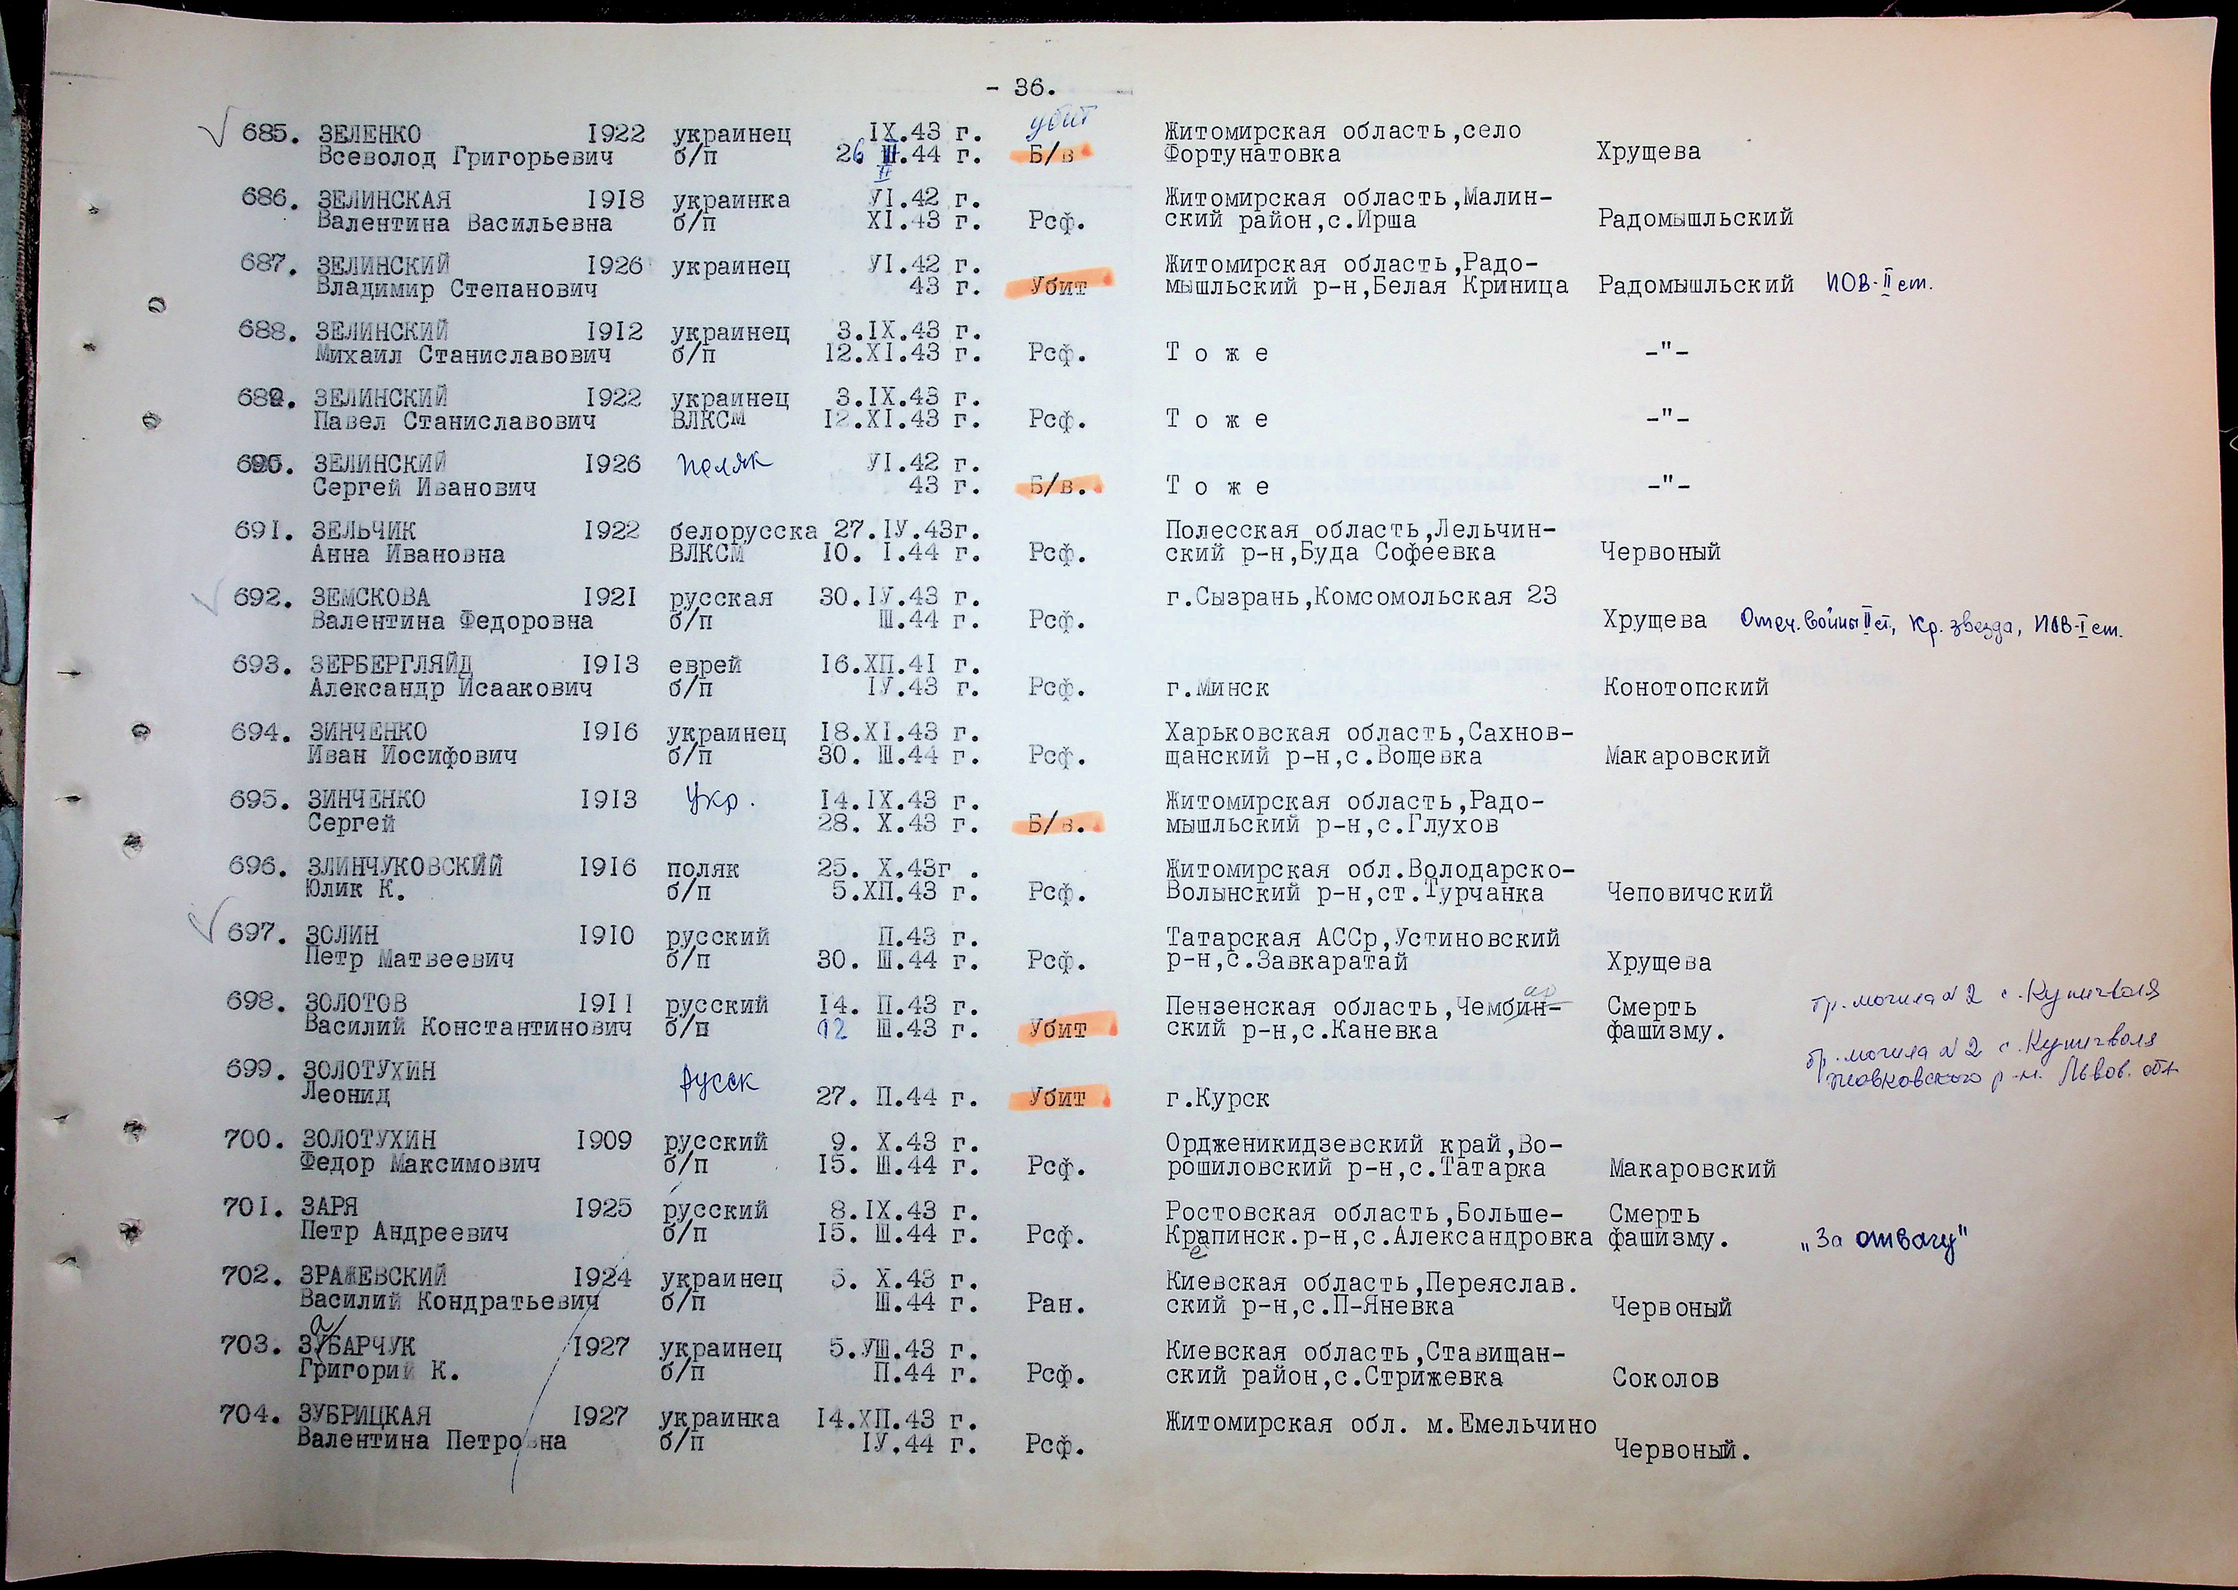 - 36.
убит
685. ЗЕЛЕНКО 1922 украинец IX.43 г. Житомирская область,село
Всеволод Григорьевич б/п 26 III.44 г. Б/в Фортунатовка Хрущева
II
686. ЗЕЛИНСКАЯ 1918 украинка УI.42 г. Житомирская область,Малин-
Валентина Васильевна б/п XI.43 г. Рсф. ский район,с.Ирша Радомышльский
687. ЗЕЛИНСКИЙ 1926 украинец УI.42 г. Житомирская область,Радо-
Владимир Степанович 43 г. Убит мышльский р-н,Белая Криница Радомышльский ПОВ-II ст.
688. ЗЕЛИНСКИЙ 1912 украинец 3.IX.43 г.
Михаил Станиславович б/п 12.XI.43 г. Рсф. Т о ж е -"-
689. ЗЕЛИНСКИЙ 1922 украинец 3.IX.43 г.
Павел Станиславович ВЛКСМ 12.XI.43 г. Рсф. Т о ж е -"-
690. ЗЕЛИНСКИЙ 1926 поляк УI.42 г.
Сергей Иванович 43 г. Б/в. Т о ж е -"-
691. ЗЕЛЬЧИК 1922 белорусска 27.IУ.43г. Полесская область,Лельчин-
Анна Ивановна ВЛКСМ 10. I.44 г. Рсф. ский р-н,Буда Софеевка Червоный
692. ЗЕМСКОВА 1921 русская 30.IУ.43 г. г.Сызрань,Комсомольская 23
Валентина Федоровна б/п Ш.44 г. Рсф. Хрущева Отеч.войны II ст., Кр. звезда, ПОВ-I ст.
693. ЗЕРБЕРГЛЯЙД 1913 еврей 16.ХП.41 г.
Александр Исаакович б/п IУ.43 г. Рсф. г.Минск Конотопский
694. ЗИНЧЕНКО 1916 украинец 18.XI.43 г. Харьковская область,Сахнов-
Иван Иосифович б/п 30. Ш.44 г. Рсф. щанский р-н,с.Вощевка Макаровский
695. ЗИНЧЕНКО 1913 Укр. 14.IX.43 г. Житомирская область,Радо-
Сергей 28. X.43 г. Б/в. мышльский р-н,с.Глухов
696. ЗЛИНЧУКОВСКИЙ 1916 поляк 25. X.43г . Житомирская обл.Володарско-
Юлик К. б/п 5.ХП.43 г. Рсф. Волынский р-н,ст.Турчанка Чеповичский
697. ЗОЛИН 1910 русский П.43 г. Татарская АССр,Устиновский
Петр Матвеевич б/п 30. Ш.44 г. Рсф. р-н,с.Завкаратай Хрущева
698. ЗОЛОТОВ 1911 русский 14. П.43 г. Пензенская область,Чембин- Смерть гр. могила №2 с. Купичволя
ар
Василий Константинович б/п 12 Ш.43 г. Убит ский р-н,с.Каневка фашизму.
699. ЗОЛОТУХИН русск бр. могила №2 с. Купичволя
Леонид 27. П.44 г. Убит г.Курск Жовковского р-н. Львов. обл.
700. ЗОЛОТУХИН 1909 русский 9. X.43 г. Ордженикидзевский край,Во-
Федор Максимович б/п 15. Ш.44 г. Рсф. рошиловский р-н,с.Татарка Макаровский
701. ЗАРЯ 1925 русский 8.IX.43 г. Ростовская область,Больше- Смерть
Петр Андреевич б/п 15. Ш.44 г. Рсф. Крапинск.р-н,с.Александровка фашизму. „За отвагу"
е
702. ЗРАЖЕВСКИЙ 1924 украинец 5. X.43 г. Киевская область,Переяслав.
Василий Кондратьевич б/п Ш.44 г. Ран. ский р-н,с.П-Яневка Червоный
а
703. ЗУБАРЧУК 1927 украинец 5.УШ.43 г. Киевская область,Ставищан-
Григорий К. б/п П.44 г. Рсф. ский район,с.Стрижевка Соколов
704. ЗУБРИЦКАЯ 1927 украинка 14.ХП.43 г. Житомирская обл. м.Емельчино
Валентина Петровна б/п IУ.44 г. Рсф. Червоный.